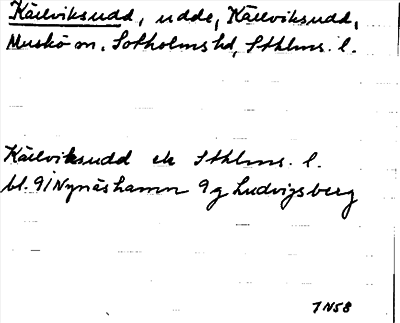 Källviksudd, udde, Källviksudd,
Muskö sn. Sotholms hd, Sthlms. l.
Källviksudd ek Sthlms. l.
bl. 91 Nynäshamn 9g Ludvigsberg
7N58